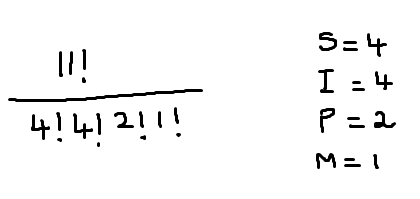 11!
4! 4! 2! 1!
S = 4
I = 4
P = 2
M = 1